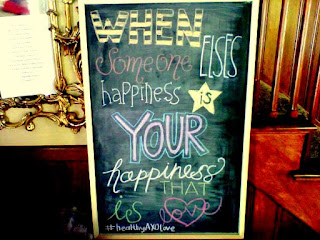 WHEN
Someone ELSES
happiness is
YOUR
happiness
THAT
is love
#healthyAXOlove